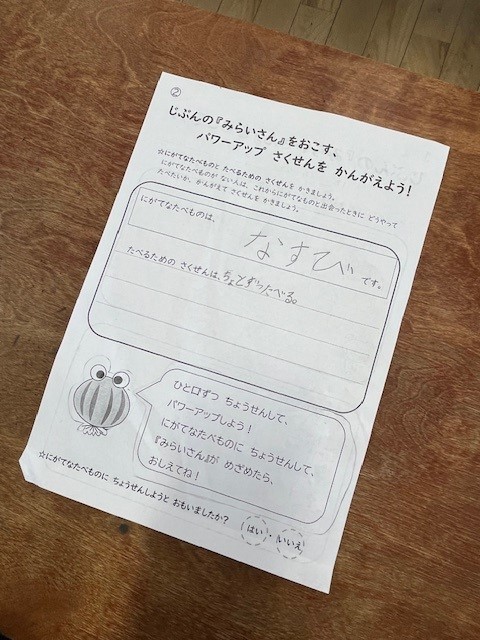 ②
じぶんの『みらいさん』をおこす、
パワーアップ さくせんを かんがえよう!
☆にがてなたべものと たべるための さくせんを かきましょう。
にがてなたべものが ない人は、これからにがてなものと出合ったときに どうやって
たべたいか、かんがえて さくせんを かきましょう。
にがてなたべものは、 なすび です。
たべるための さくせんは、ちょとずつたべる。
ひと口ずつ ちょうせんして、
パワーアップしよう!
にがてなたべものに ちょうせんして、
『みらいさん』が めざめたら、
おしえてね!
☆にがてなたべものに ちょうせんしようと おもいましたか? はい・いいえ